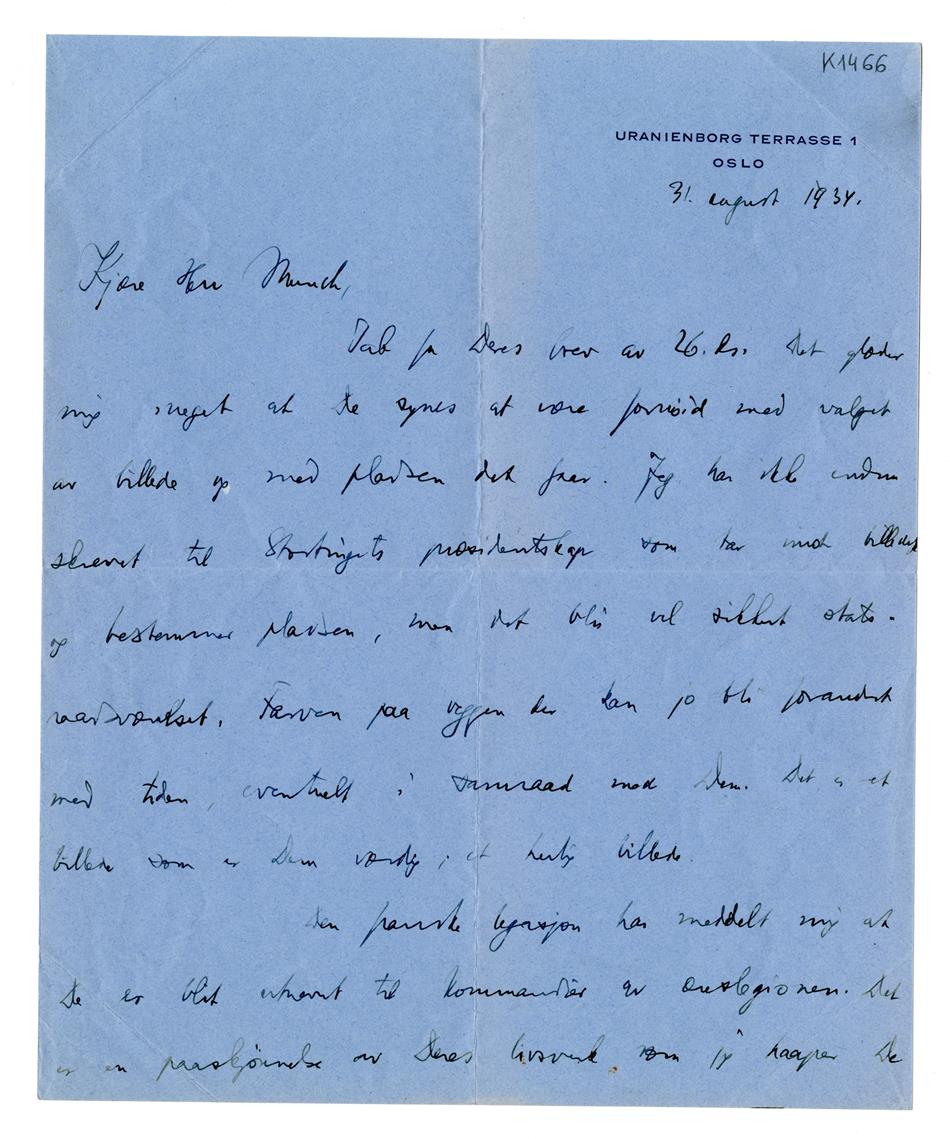 K1466
URANIENBORG TERRASSE 1
OSLO
31. august 1934.
Kjære Herr Munch,
Tak for Deres brev av 26. ds. Det glæder
mig meget at De synes at være fornøid med valget
av billede og med pladsen det faar. Jeg har ikke endnu
skrevet til Stortingets præsidentskap som tar imot billedet
og bestemmer pladsen, men det blir vel sikkert stats-
raadsværelset. Farven paa væggen der kan jo bli forandret
med tiden, eventuelt i samraad med Dem. Det er et
billede som er Dem værdig; et herlig billede.
Den franske legasjon har meddelt mig at
De er blit utnevnt til kommandør av æreslegionen. Det
er en paaskjønnelse av Deres livsverk som jeg haaper De